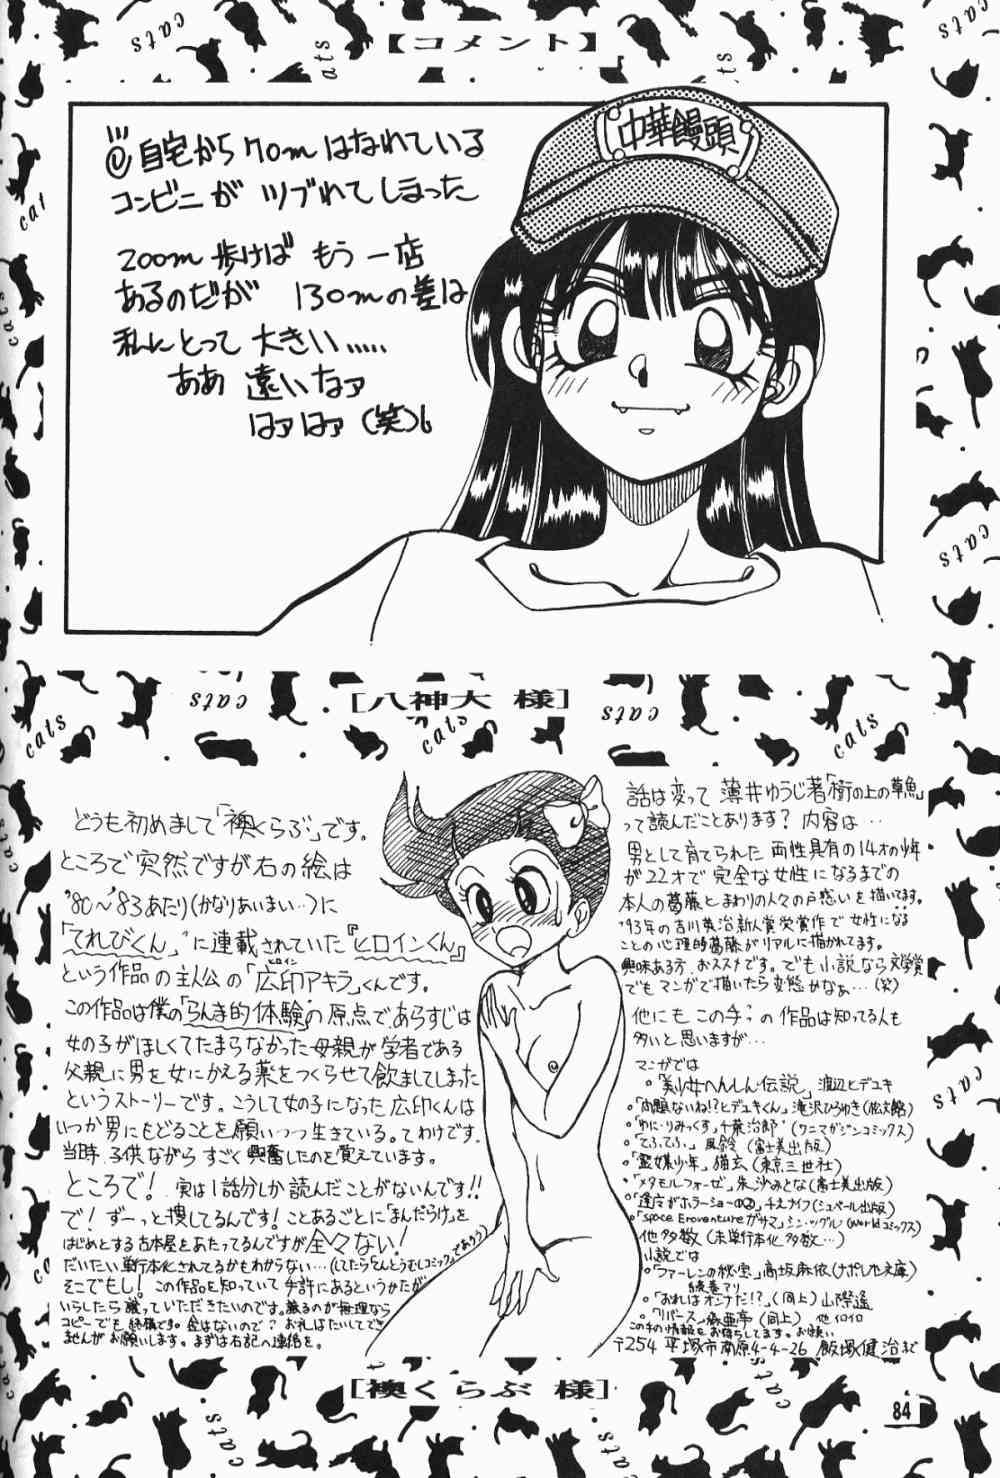 【コメント】
中華饅頭
自宅から70mはなれている
コンビニが ツブれてしまった
200m 歩けば もう一店
あるのだが 130mの差は
私にとって 大きい.....
ああ 遠いなァ
はァはァ(笑)
[八神大 様]
どうも初めまして「襖くらぶ」です。
ところで突然ですが右の絵は
'80～'83あたり(かなりあいまい…)に
「てれびくん」に連載されていた『ヒロインくん』
という作品の主人公の「広印アキラ」くんです。
ヒロイン
この作品は僕の「らんま的体験」の原点で、あらすじは
女の子がほしくてたまらなかった母親が学者である
父親に男を女にかえる薬をつくらせて飲ましてしまった
というストーリーです。こうして女の子になった広印くんは
いつか男にもどることを願いつつ生きている。てわけです。
当時、子供ながらすごく興奮したのを覚えています。
ところで! 実は1話分しか読んだことがないんです!!
で! ずーっと捜してるんです! ことあるごとに「まんだらけ」を
はじめとする古本屋をあたってるんですが全々ない!
だいたい単行本化されてるかもわからない…(してたらてんとうむしコミックスであろう)
そこでもし! この作品を知っていて手許にあるというかたが
いらしたら譲っていただきたいのです。譲るのが無理なら
コピーでも結構です。金はないので? お礼はたいしてでき
ませんがお願いします。まずは右記へ連絡を。
話は変って 薄井ゆうじ著「樹の上の草魚」
って読んだことあります? 内容は…
男として育てられた 両性具有の14才の少年
が22才で 完全な女性になるまでの
本人の葛藤とまわりの人々の戸惑いを描いてます。
'93年の吉川英治新人賞受賞作で 女性になる
ことの心理的葛藤がリアルに描かれてます。
興味ある方、おススメです。でも小説なら文学賞
でもマンガで描いたら変態かなぁ…(笑)
他にも この手の作品は知ってる人も
多いと思いますが…
マンガでは
。「美少女へんしん伝説」渡辺ヒデユキ
。「問題ないね!?ヒデユキくん」滝沢ひろゆき(松文館)
。「わに・りみっくす」千葉治郎(ワニマガジンコミックス)
。「てふてふ」風鈴(富士美出版)
。「霊媒少年」猫玄(東京三世社)
。「メタモルフォーゼ」朱沙みとな(富士美出版)
。「達彦がホラーショーの2」チえナイフ(ジュペール出版)
。「Space Eroventureガサマ」シン・ツグル(Worldコミックス)
他多数(未単行本化多数…)
小説では
。「ファーレンの秘宝」高坂麻依(ナポレオン文庫)
続巻アリ
。「おれはオンナだ!?」(同上)山際遥
。「リバース」森亜亭(同上) 他イロイロ
この手の情報をお待ちしてます。お願い
〒254 平塚市南原4-4-26 飯塚健治まで
[襖くらぶ 様]
84
cats